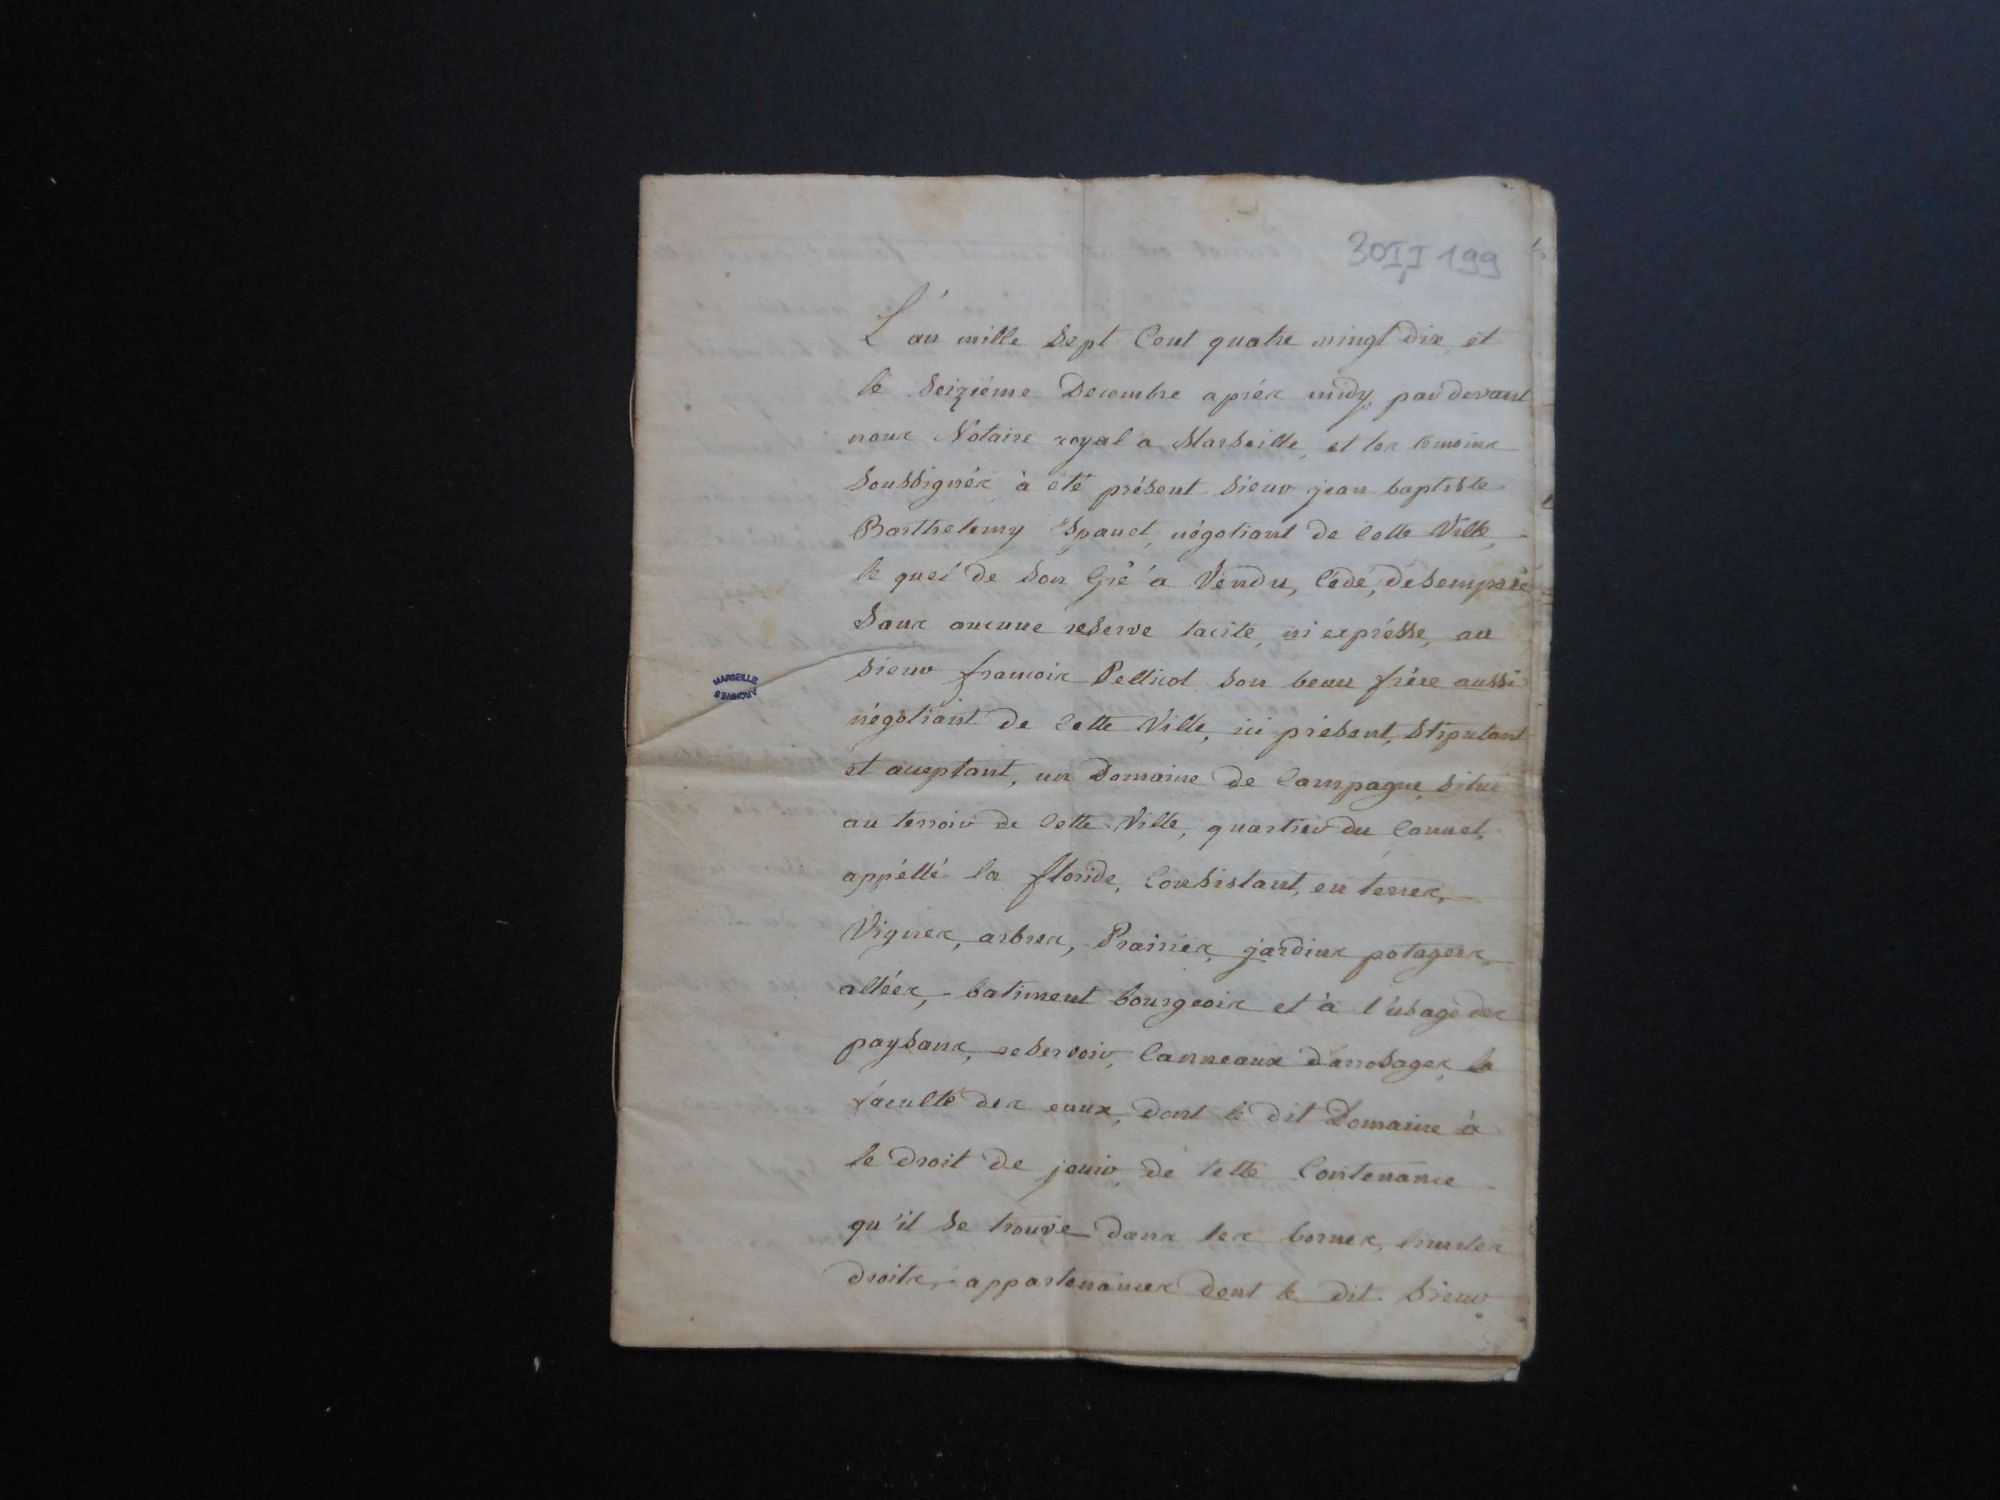 30 II 199
L'an mille sept Cent quatre vingt dix, et
le seiziéme Decembre aprés midy, par devant
nous Notaire royal a Marseille, et les temoins
soussignés à été présent sieur jean baptiste
Barthelemy Epanet, négotiant de Cette Ville,
le quel de son Gré a Vendu, Cédé, désemparé
sans aucune reserve tacite, ni exprésse, au
sieur francois Pellicot son beau frére aussi
négotiant de Cette Ville, ici présent, stipulant
et acceptant, un Domaine de Campagne situé
au terroir de Cette Ville, quartier du Cannet,
appéllé la floride, Consistant, en terres,
Vignes, arbres, Prairies, jardins potagers,
allées, batiment bourgeois et à l'usage des
paysans, reservoir, Canneaux d'arrosages, la
faculté des eaux, dont le dit Domaine à
le droit de jouir, de telle Contenance
qu'il se trouve dans les bornes, limites
droits, appartenances dont le dit sieur
MARSEILLE
ARCHIVES